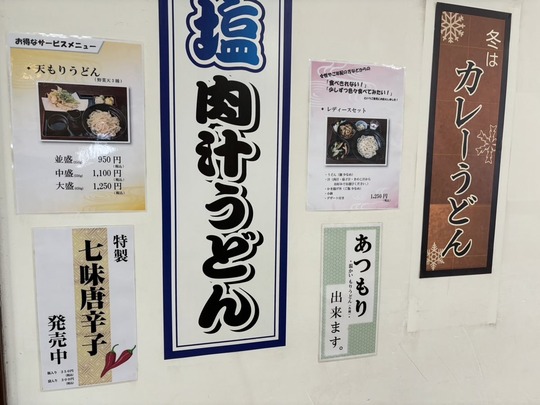 お得なサービスメニュー
・天もりうどん
(野菜天5種)
並盛 950円
(税込)
中盛 1,100円
(税込)
大盛 1,250円
(税込)
特製
七味唐辛子
発売中
塩
肉汁うどん
「食べきれない！」
「少しずつ色々食べてみたい！」
・レディースセット
1,250円
(税込)
あつもり
出来ます。
冬は
カレーうどん